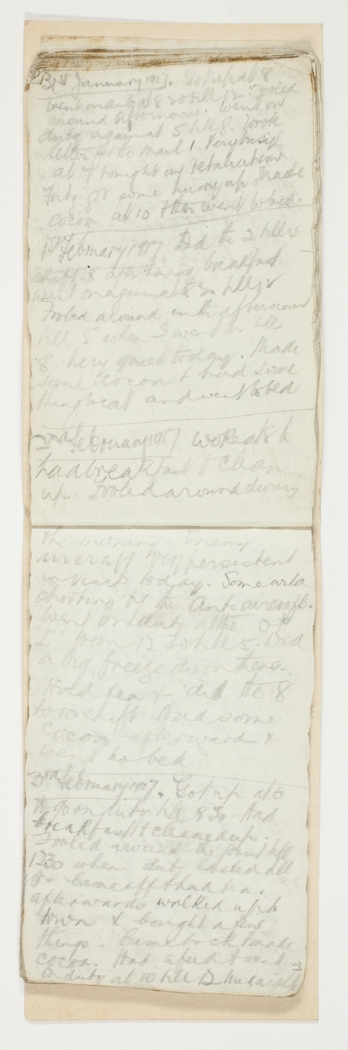 31st January 1917. Got up at 8
went on duty at 8 30 till 12. Fooled
around afternoon. Went on
duty again at 5 till 8. Wrote
after to the mail. Very busy
at tonight on retaliation
Fritz got some hurry up. Made
cocoa at 10 then went to bed.
1st February 1917 Did the 2 till
shift & after having breakfast
went on again at 8 30 till
Fooled around in the afternoon
till 5 when I went on till
8. Very quiet today. Made
some cocoa & had some
thing to eat and went to bed
2nd February 1917 Woke at 8 &
had breakfast & clean
up. Fooled around during
the morning. Enemy
aircraft very persistent
today. Some wild
shooting of the Anti aircraft.
Went on duty at the O
from 12 30 till 5. Did
a big freeze down there.
Had tea & did the 8
hour shift. Had some
cocoa afterward &
went to bed
3rd February 1917. Got up at 6
to go on duty till 8 30. Had
breakfast & cleaned up.
Fooled around the joint till
1230 when duty lasted till
5. Came off & had tea.
afterwards walked up to
town & bought a few
things. Came back & made
cocoa. Had a feed & went
on duty at 10 till 12 midnight